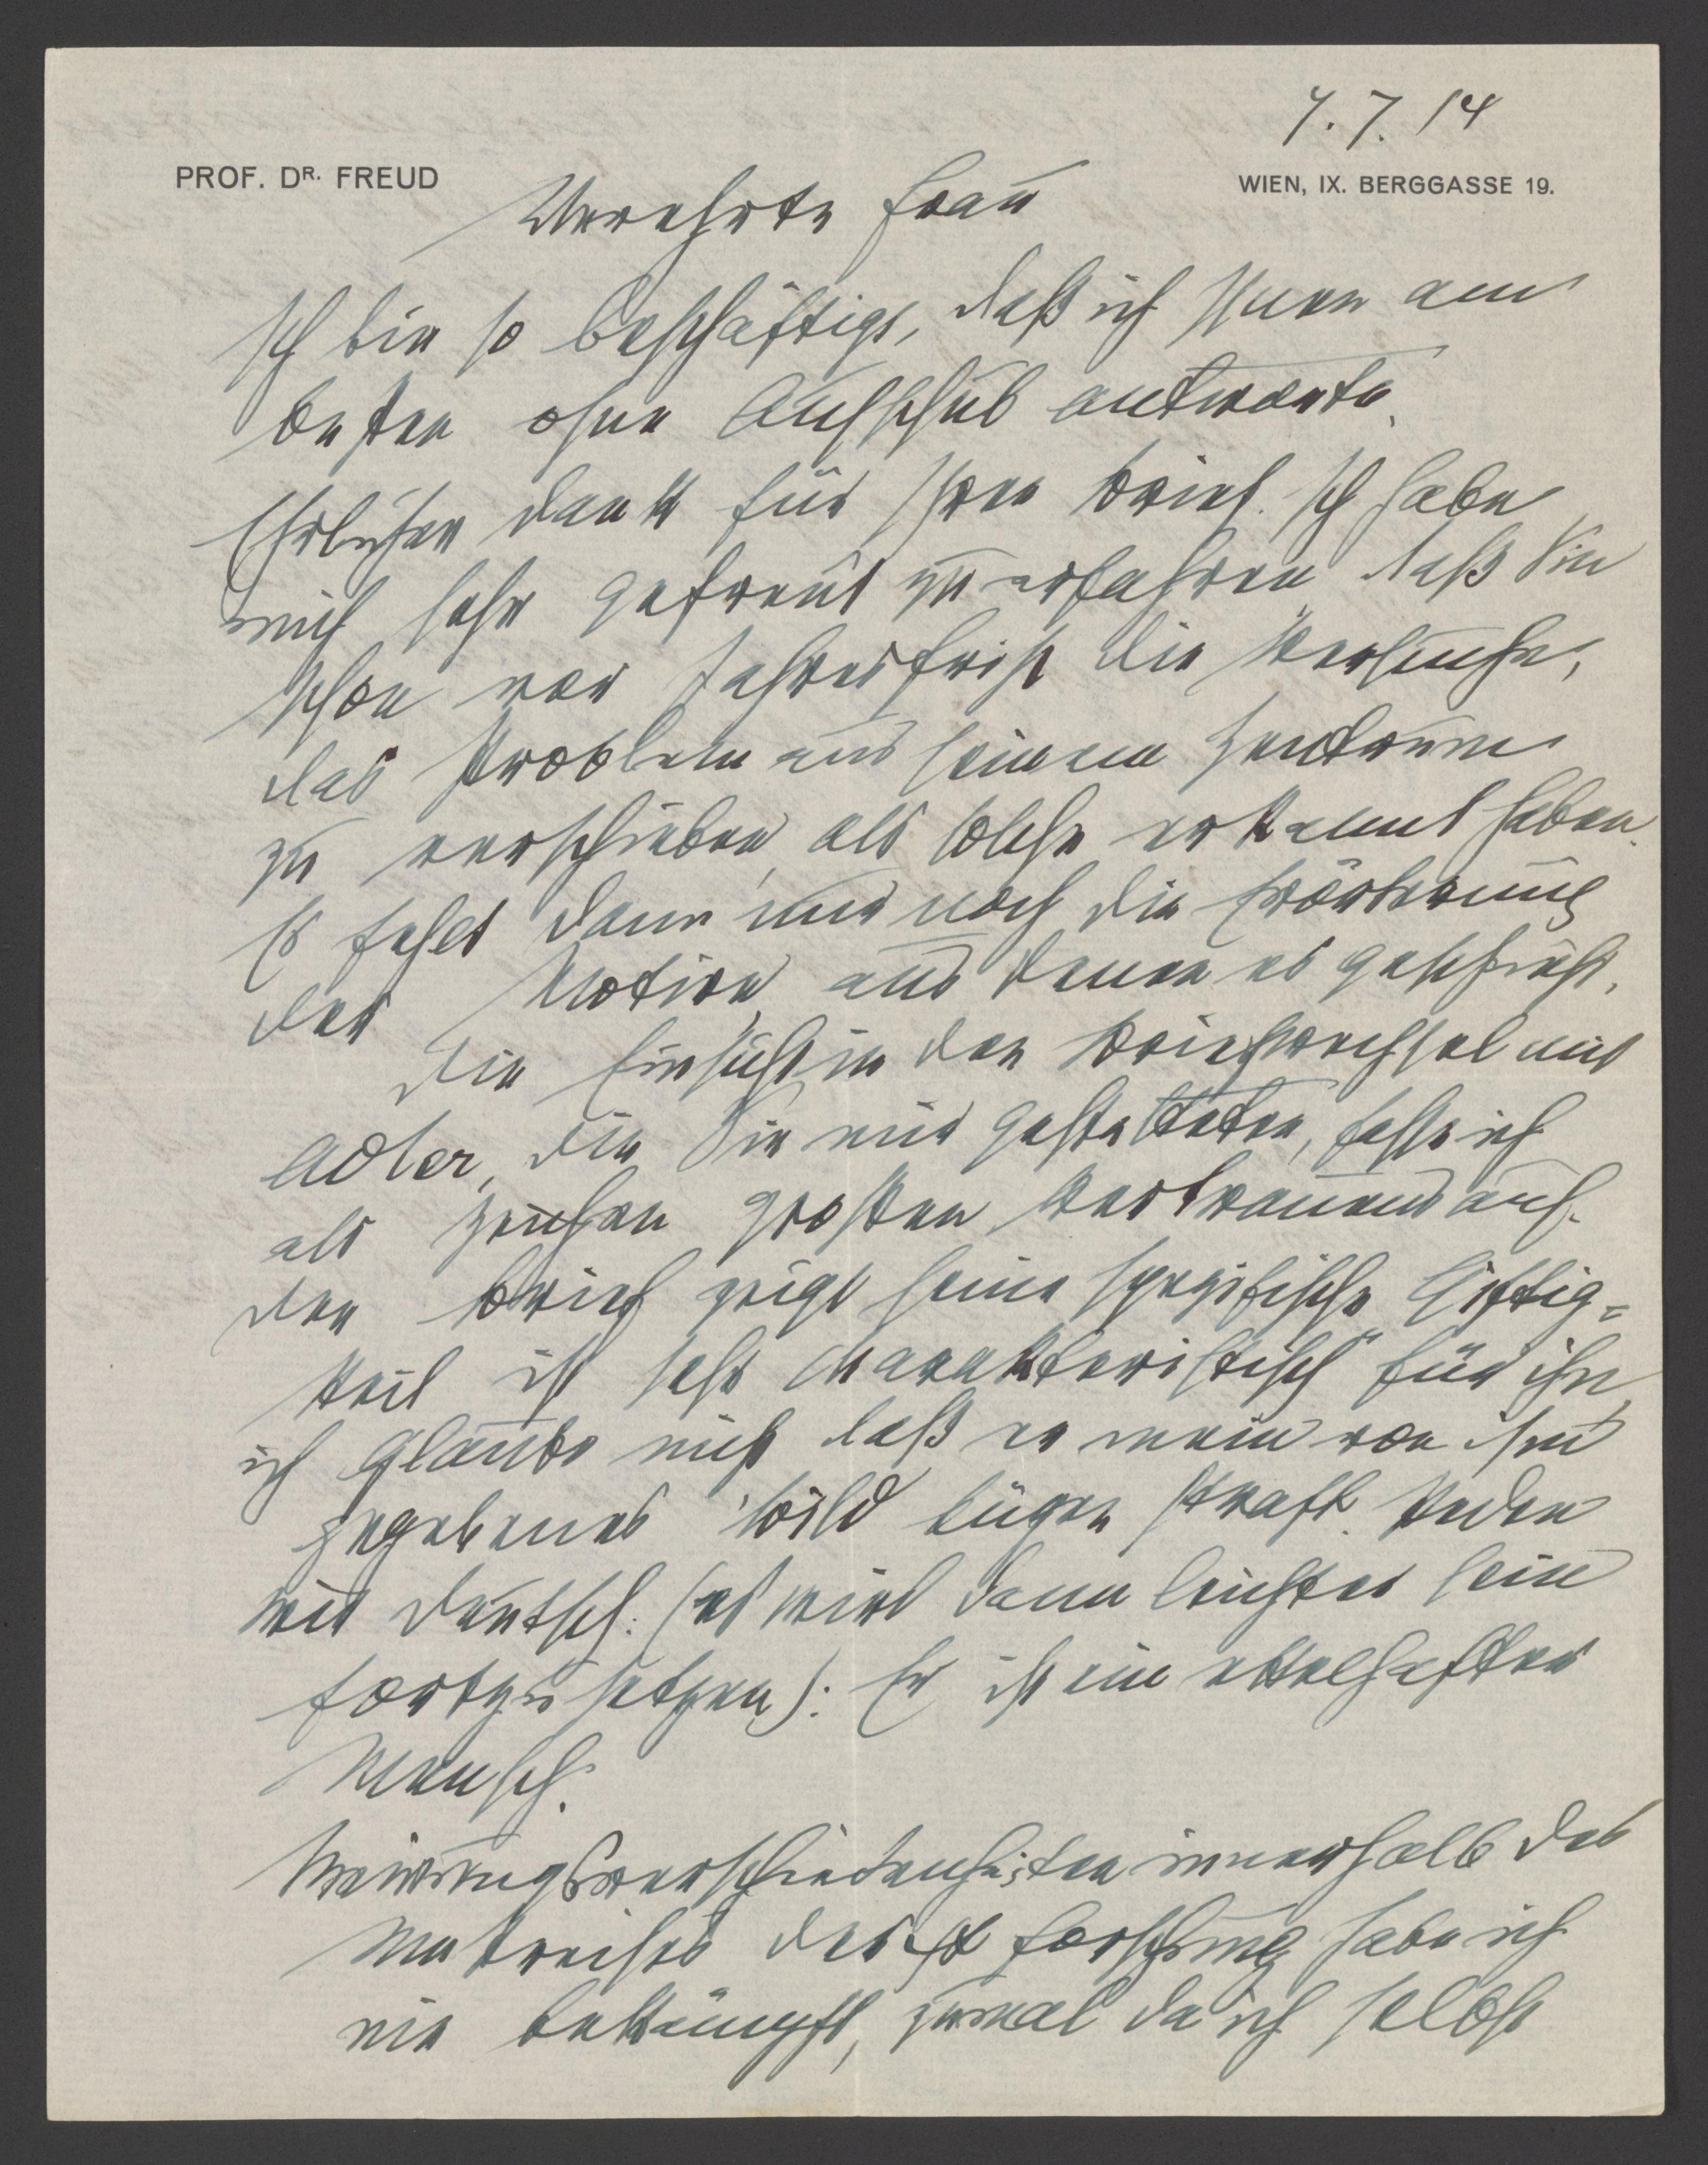 7. 7. 14
PROF. DR. FREUD
WIEN, IX. BERGGASSE 19.
Verehrte Frau
Ich bin so beschäftigt, daß ich Ihnen am
besten ohne Aufschub antworte.
Ehrlichen Dank für Ihren Brief. Ich habe
mich sehr gefreut zu erfahren daß Sie
schon vor Jahresfrist die Versuche,
das Problem aus seinem Zentrum
zu verschieben, als solche erkannt haben.
Es fehlt dann nur noch die Erörterung
der Motive, aus denen es geschieht.
Die Einsicht in den Briefwechsel mit
Adler, die Sie mir gestatteten, fasse ich
als Zeichen großen Vertrauens auf.
Der Brief zeigt seine spezifische Giftig=
keit ist sehr charakteristisch für ihn,
ich glaube nicht daß er mein von ihm
gegebenes Bild Lügen straft. Reden
wir deutsch. (es wird dann leichter sein
fortzusetzen): Er ist ein ekelhafter
Mensch.
Meinungsverschiedenheiten innerhalb des
der ψα Forschung habe ich
nie bekämpft, zumal da ich selbst